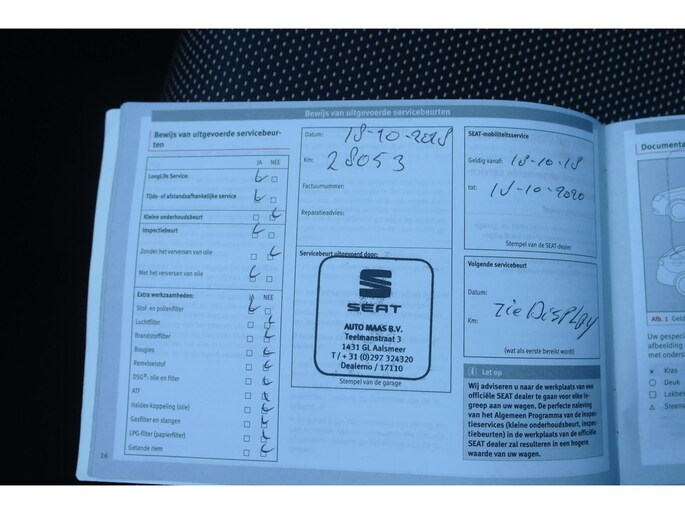 Bewijs van uitgevoerde servicebeurten
Bewijs van uitgevoerde servicebeur-
ten
JA NEE
LongLife Service
Tijds- of afstandsafhankelijke service
Kleine onderhoudsbeurt
Inspectiebeurt
Zonder het verversen van olie
Met het verversen van olie
Extra werkzaamheden: JA NEE
Stof- en pollenfilter
Luchtfilter
Brandstoffilter
Bougies
Remvloeistof
DSG®: olie en filter
ATF
Haldex-koppeling (olie)
Gasfilter en slangen
LPG-filter (papierfilter)
Getande riem
16
Datum: 18-10-2018
Km: 28053
Factuurnummer:
Reparatieadvies:
Servicebeurt uitgevoerd door:
SEAT
AUTO MAAS B.V.
Teelmanstraat 3
1431 GL Aalsmeer
T / + 31 (0)297 324320
Dealerno / 17110
Stempel van de garage
SEAT-mobiliteitsservice
Geldig vanaf: 18-10-18
tot: 18-10-2020
Stempel van de SEAT-dealer
Volgende servicebeurt
Datum:
Km: zie DISPLAY
(wat als eerste bereikt wordt)
i Let op
Wij adviseren u naar de werkplaats van een
officiële SEAT dealer te gaan voor elke in-
greep aan uw wagen. De perfecte naleving
van het Algemeen Programma van de inspec-
tieservices (kleine onderhoudsbeurt, inspec-
tiebeurten) in de werkplaats van de officiële
SEAT dealer zal resulteren in een hogere
waarde van uw wagen.
Documenta
Afb. 1 Geld
Uw gespeci
afbeelding
met onders
× Kras
○ Deuk
□ Lakbev
△ Steens